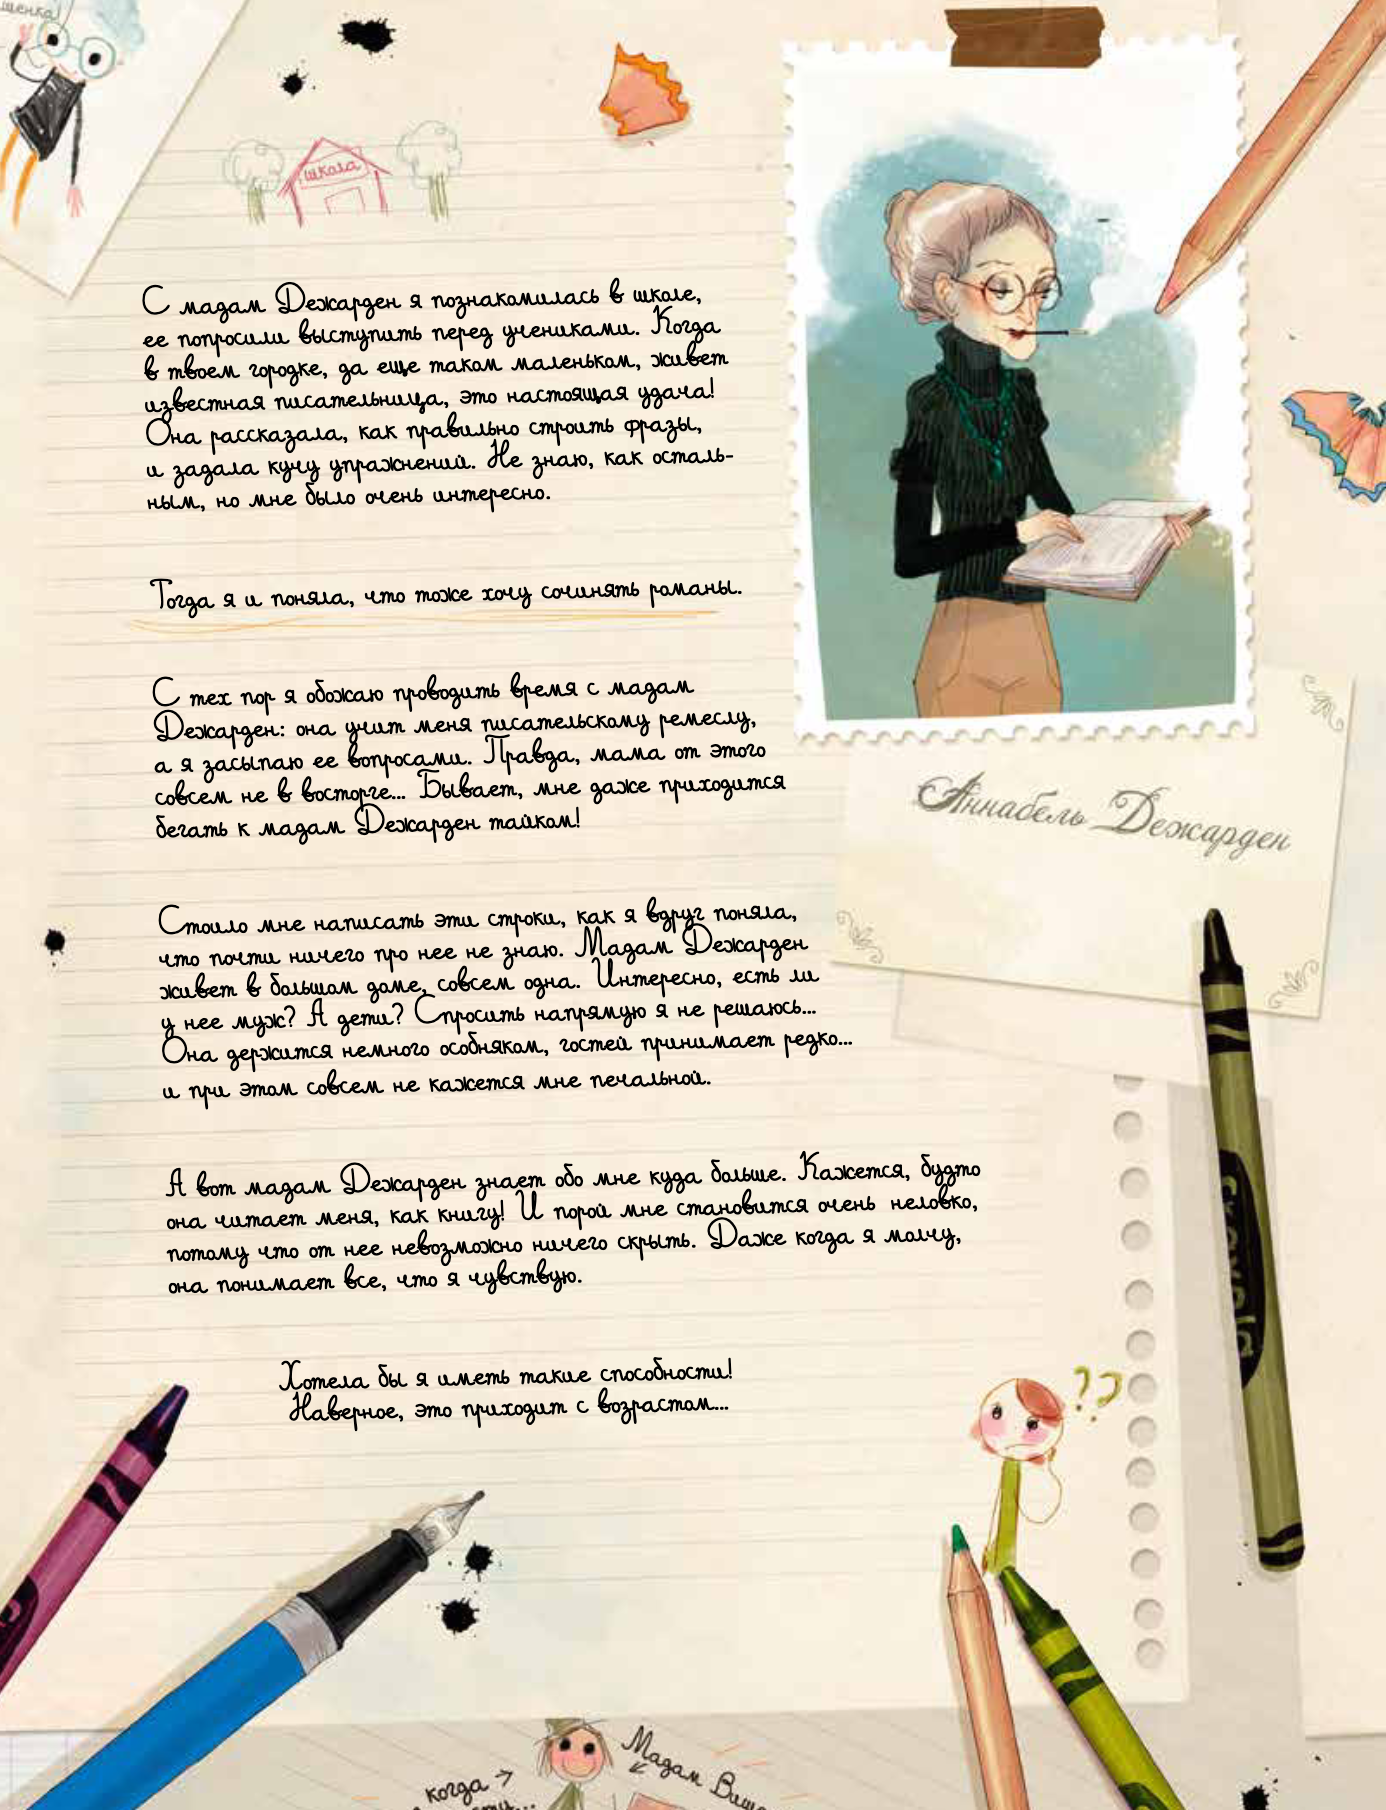 школа
С мадам Дежарден я познакомилась в школе,
ее попросили выступить перед учениками. Когда
в твоем городке, да еще таком маленьком, живет
известная писательница, это настоящая удача!
Она рассказала, как правильно строить фразы,
и задала кучу упражнений. Не знаю, как осталь-
ным, но мне было очень интересно.
Тогда я и поняла, что тоже хочу сочинять романы.
С тех пор я обожаю проводить время с мадам
Дежарден: она учит меня писательскому ремеслу,
а я засыпаю ее вопросами. Правда, мама от этого
совсем не в восторге... Бывает, мне даже приходится
бегать к мадам Дежарден тайком!
Аннабель Дежарден
Стоило мне написать эти строки, как я вдруг поняла,
что почти ничего про нее не знаю. Мадам Дежарден
живет в большом доме, совсем одна. Интересно, есть ли
у нее муж? А дети? Спросить напрямую я не решаюсь...
Она держится немного особняком, гостей принимает редко...
и при этом совсем не кажется мне печальной.
А вот мадам Дежарден знает обо мне куда больше. Кажется, будто
она читает меня, как книгу! И порой мне становится очень неловко,
потому что от нее невозможно ничего скрыть. Даже когда я молчу,
она понимает все, что я чувствую.
Хотела бы я иметь такие способности!
Наверное, это приходит с возрастом...
??
Мадам
когда